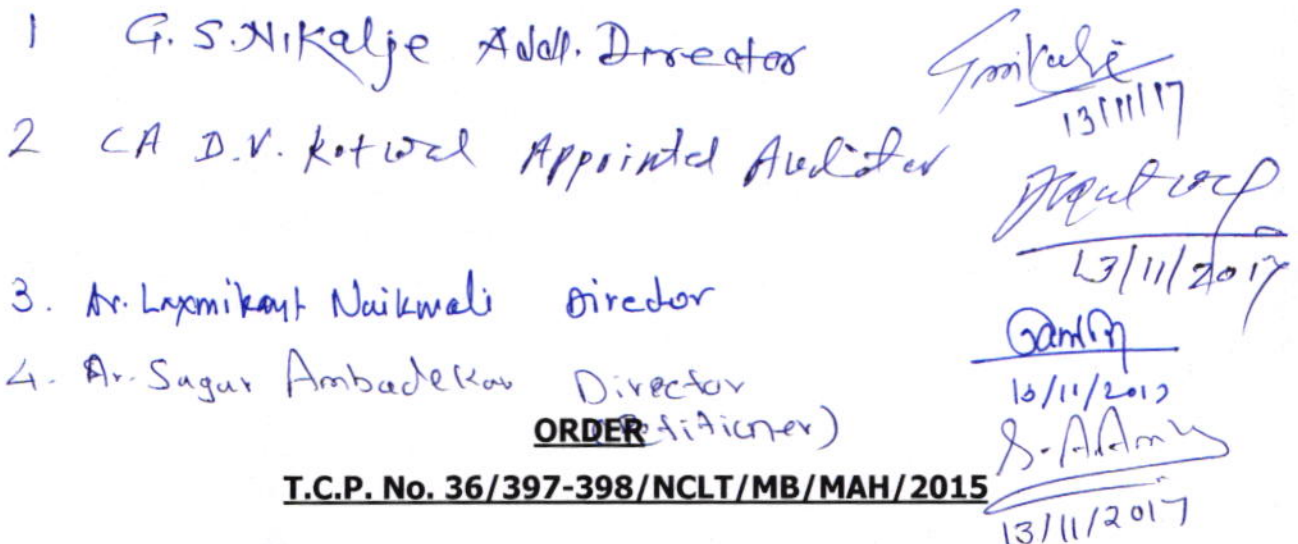 1 G. S. Nikalje Addl. Director
13/11/17
2 CA D.V. Kotwal Appointed Auditor
13/11/2017
3. Ar. Laxmikant Naikmali Director
13/11/2017
4. Ar. Sagar Ambadekar Director
(Petitioner)
ORDER
T.C.P. No. 36/397-398/NCLT/MB/MAH/2015
13/11/2017